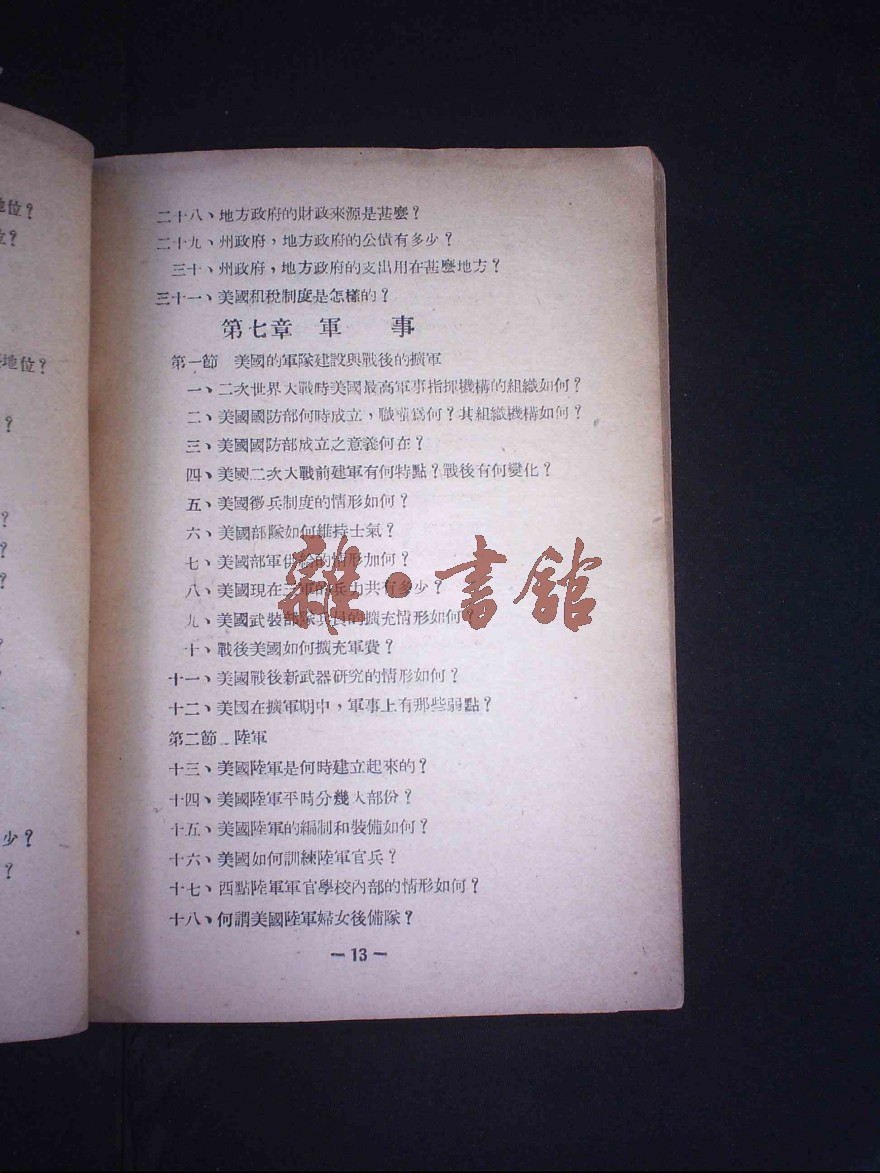 地位？
位？
地位？
？
？
？
？
？
？
少？
？
二十八、地方政府的財政來源是甚麼？
二十九、州政府，地方政府的公債有多少？
三十、州政府，地方政府的支出用在甚麼地方？
三十一、美國租稅制度是怎樣的？
第七章 軍 事
第一節 美國的軍隊建設與戰後的擴軍
一、二次世界大戰時美國最高軍事指揮機構的組織如何？
二、美國國防部何時成立，職權爲何？其組織機構如何？
三、美國國防部成立之意義何在？
四、美國二次大戰前建軍有何特點？戰後有何變化？
五、美國徵兵制度的情形如何？
六、美國部隊如何維持士氣？
七、美國部軍供給的情形如何？
八、美國現在三軍的兵力共有多少？
九、美國武裝部隊兵員的擴充情形如何？
十、戰後美國如何擴充軍費？
十一、美國戰後新武器研究的情形如何？
十二、美國在擴軍期中，軍事上有那些弱點？
第二節 陸軍
十三、美國陸軍是何時建立起來的？
十四、美國陸軍平時分幾大部份？
十五、美國陸軍的編制和裝備如何？
十六、美國如何訓練陸軍官兵？
十七、西點陸軍軍官學校內部的情形如何？
十八、何謂美國陸軍婦女後備隊？
— 13 —
雜·書館